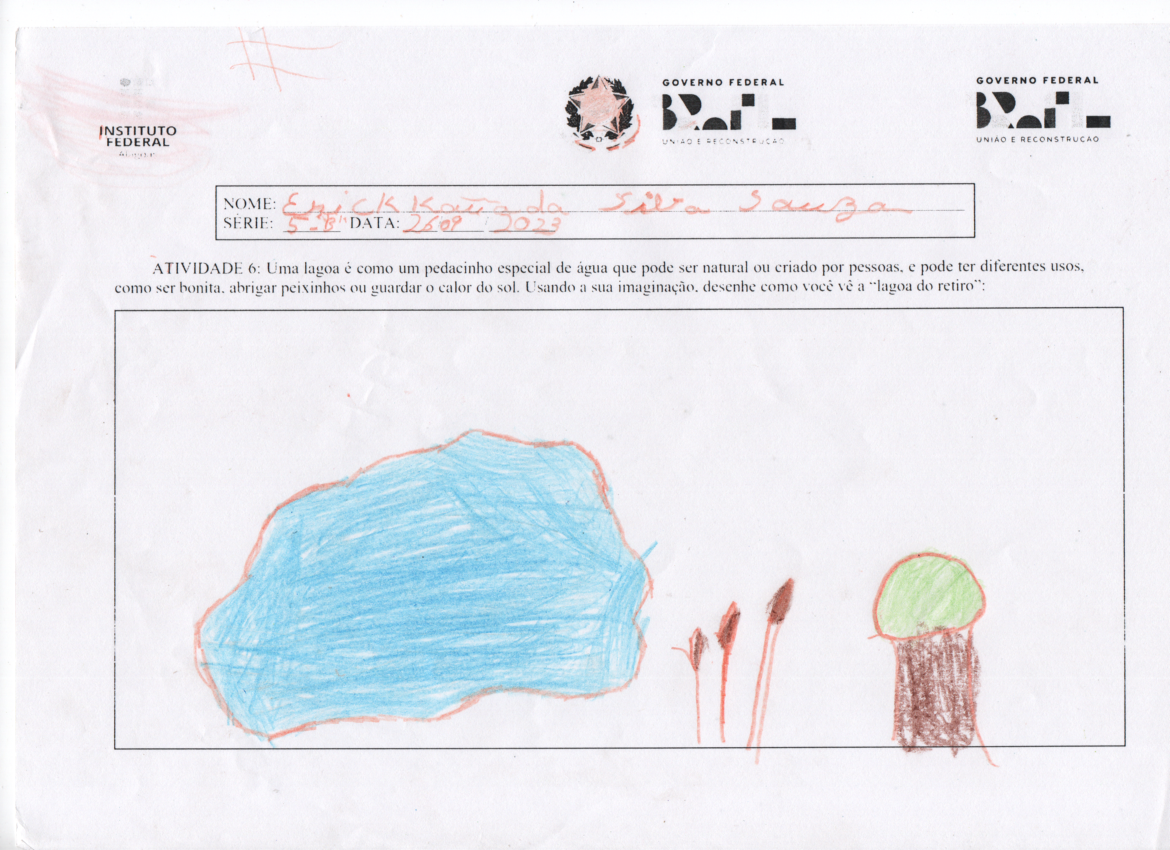 INSTITUTO
FEDERAL
Alagoas
GOVERNO FEDERAL
BRASIL
UNIÃO E RECONSTRUÇÃO
GOVERNO FEDERAL
BRASIL
UNIÃO E RECONSTRUÇÃO
NOME: Erick Kauã da Silva Souza
SÉRIE: 5-"B" DATA: 26 09 2023
ATIVIDADE 6: Uma lagoa é como um pedacinho especial de água que pode ser natural ou criado por pessoas, e pode ter diferentes usos,
como ser bonita, abrigar peixinhos ou guardar o calor do sol. Usando a sua imaginação, desenhe como você vê a “lagoa do retiro”: